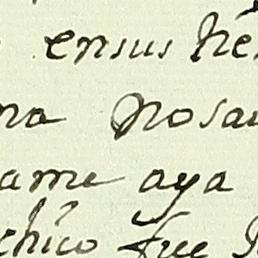 ensus
na nosa
ame aya
chico fue